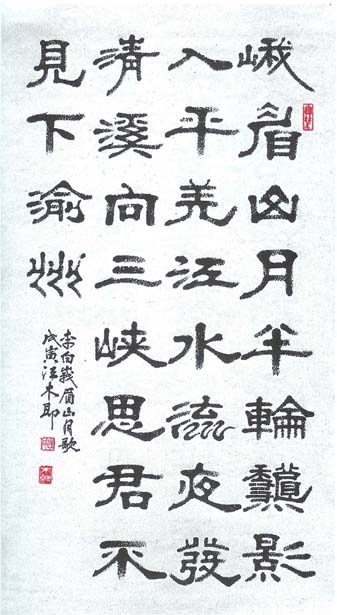 峨眉山月半輪龝影
入平羌江水流夜發
清溪向三峽思君不
見下渝州
李白峩眉山月歌
戊寅